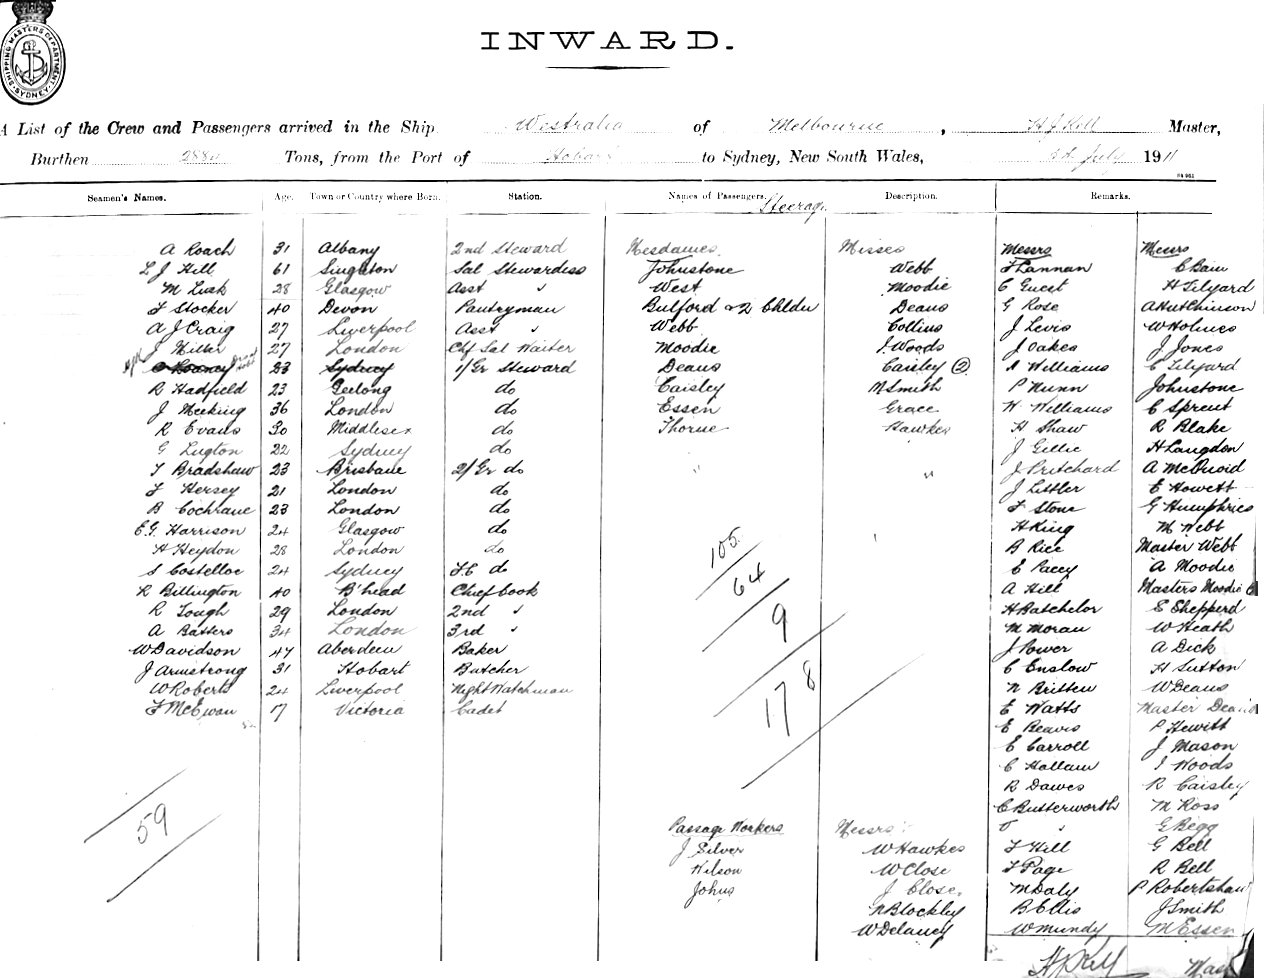 SHIPPING MASTERS DEPARTMENT SYDNEY
INWARD.
A List of the Crew and Passengers arrived in the Ship Westralia of Melbourne, H J Kell Master,
Burthen Tons, from the Port of Hobart to Sydney, New South Wales, July 1911
Seamen's Names. Age. Town or Country where Born. Station. Names of Passengers. Steerage Description. Remarks.
A Roach 31 Albany 2nd Steward Mesdames Misses Messrs Messrs
L J Hill 61 Singleton Sal Stewardess Johnstone Webb F Lannan C Bain
M Lusk 28 Glasgow Asst " West Moodie C Guest H Tilyard
F Stocker 40 Devon Pantryman Bulford & 2 Chldn Deans G Rose A Hutchinson
A J Craig 27 Liverpool Asst " Webb Collins J Levis W Holmes
J Miller 27 London Chf Sal Waiter Moodie I Woods J Oakes J Jones
23 Sydney 1/Gr Steward Deans Caisley (2) A Williams C Tilyard
R Hadfield 23 Geelong do Caisley M Smith P Nunn Johnstone
J Meeking 36 London do Essen Grace W Williams C Sprent
R Evans 30 Middlesex do Thorne Hawkes H Shaw R Blake
G Lugton 22 Sydney do J Gellie H Langdon
T Bradshaw 23 Brisbane 2/Gr do " " J Pritchard A McQuoid
F Hersey 21 London do J Littler E Howett
B Cochrane 23 London do F Stone G Humphries
E.G. Harrison 24 Glasgow do H King M Webb
H Heydon 28 London do B Rice Master Webb
S Costelloe 24 Sydney do E Pacey A Moodie
R Billington 40 B'head Chief Cook A Hill Masters Moodie
R Tough 29 London 2nd " H Batchelor E Shepperd
A Batters 34 London 3rd " M Moran W Heath
W Davidson 47 Aberdeen Baker J Power A Dick
J Armstrong 31 Hobart Butcher C Enslow H Sutton
W Roberts 24 Liverpool Night Watchman N Britten W Deans
F McEwan 17 Victoria Cadet E Watts Master Deans
E Beavis P Hewitt
E Carroll J Mason
C Hallam I Woods
R Dawes R Caisley
C Butterworth M Ross
105
64
9
178
59
Passage Workers Messrs " G Begg
J Silver W Hawkes F Hill G Bell
Wilson W Close F Page R Bell
Johns J Close M Daly P Robertshaw
N Blockley B Ellis J Smith
W Delaney W Mundy M Essen
H J Kell Mas